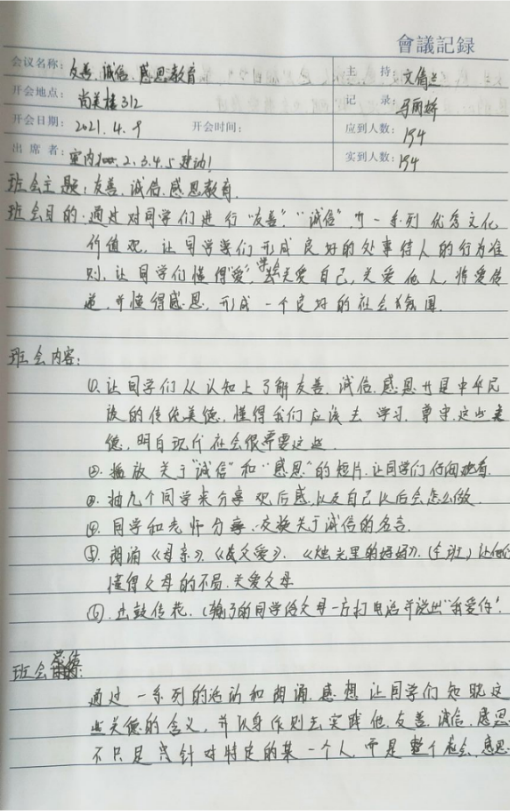 會議記録
会议名称：友善、诚信、感恩教育 主 持：文倩兰
开会地点：尚美楼312 记 录：
开会日期：2021.4.9 开会时间： 应到人数：194
出 席 者：室内 2、3、4、5 建动！ 实到人数：194
班会主题：友善、诚信、感恩教育.
班会目的：通过对同学们进行"友善"."诚信"这一系列优秀文化
价值观，让同学们形成良好的处事待人的行为准
则，让同学们懂得"爱"，学会关爱自己，关爱他人，将爱传
递，并懂得感恩，形成一个良好的社会氛围.
班会内容：
①.让同学们从认知上了解友善、诚信、感恩 是中华民
族的传统美德，懂得我们应该去学习、遵守这些美
德，明白现代社会很需要这些.
②.播放关于"诚信"和"感恩"的短片，让同学们仔细观看.
③.抽几个同学来分享观后感，以及自己以后会怎么做.
④.同学和老师分享、交换关于诚信的名言.
⑤.朗诵《母亲》、《父爱》、《烛光里的妈妈》.(全班) 让他们
懂得父母的不易，关爱父母
⑥.击鼓传花.(输了的同学给父母一方打电话并说出"我爱你".
班会总结：
通过一系列的活动和朗诵，感想 让同学们知晓这
些美德的含义，并以身作则去实践他，友善、诚信、感恩
不只是 针对特定的某一个人，而是整个社会，感恩